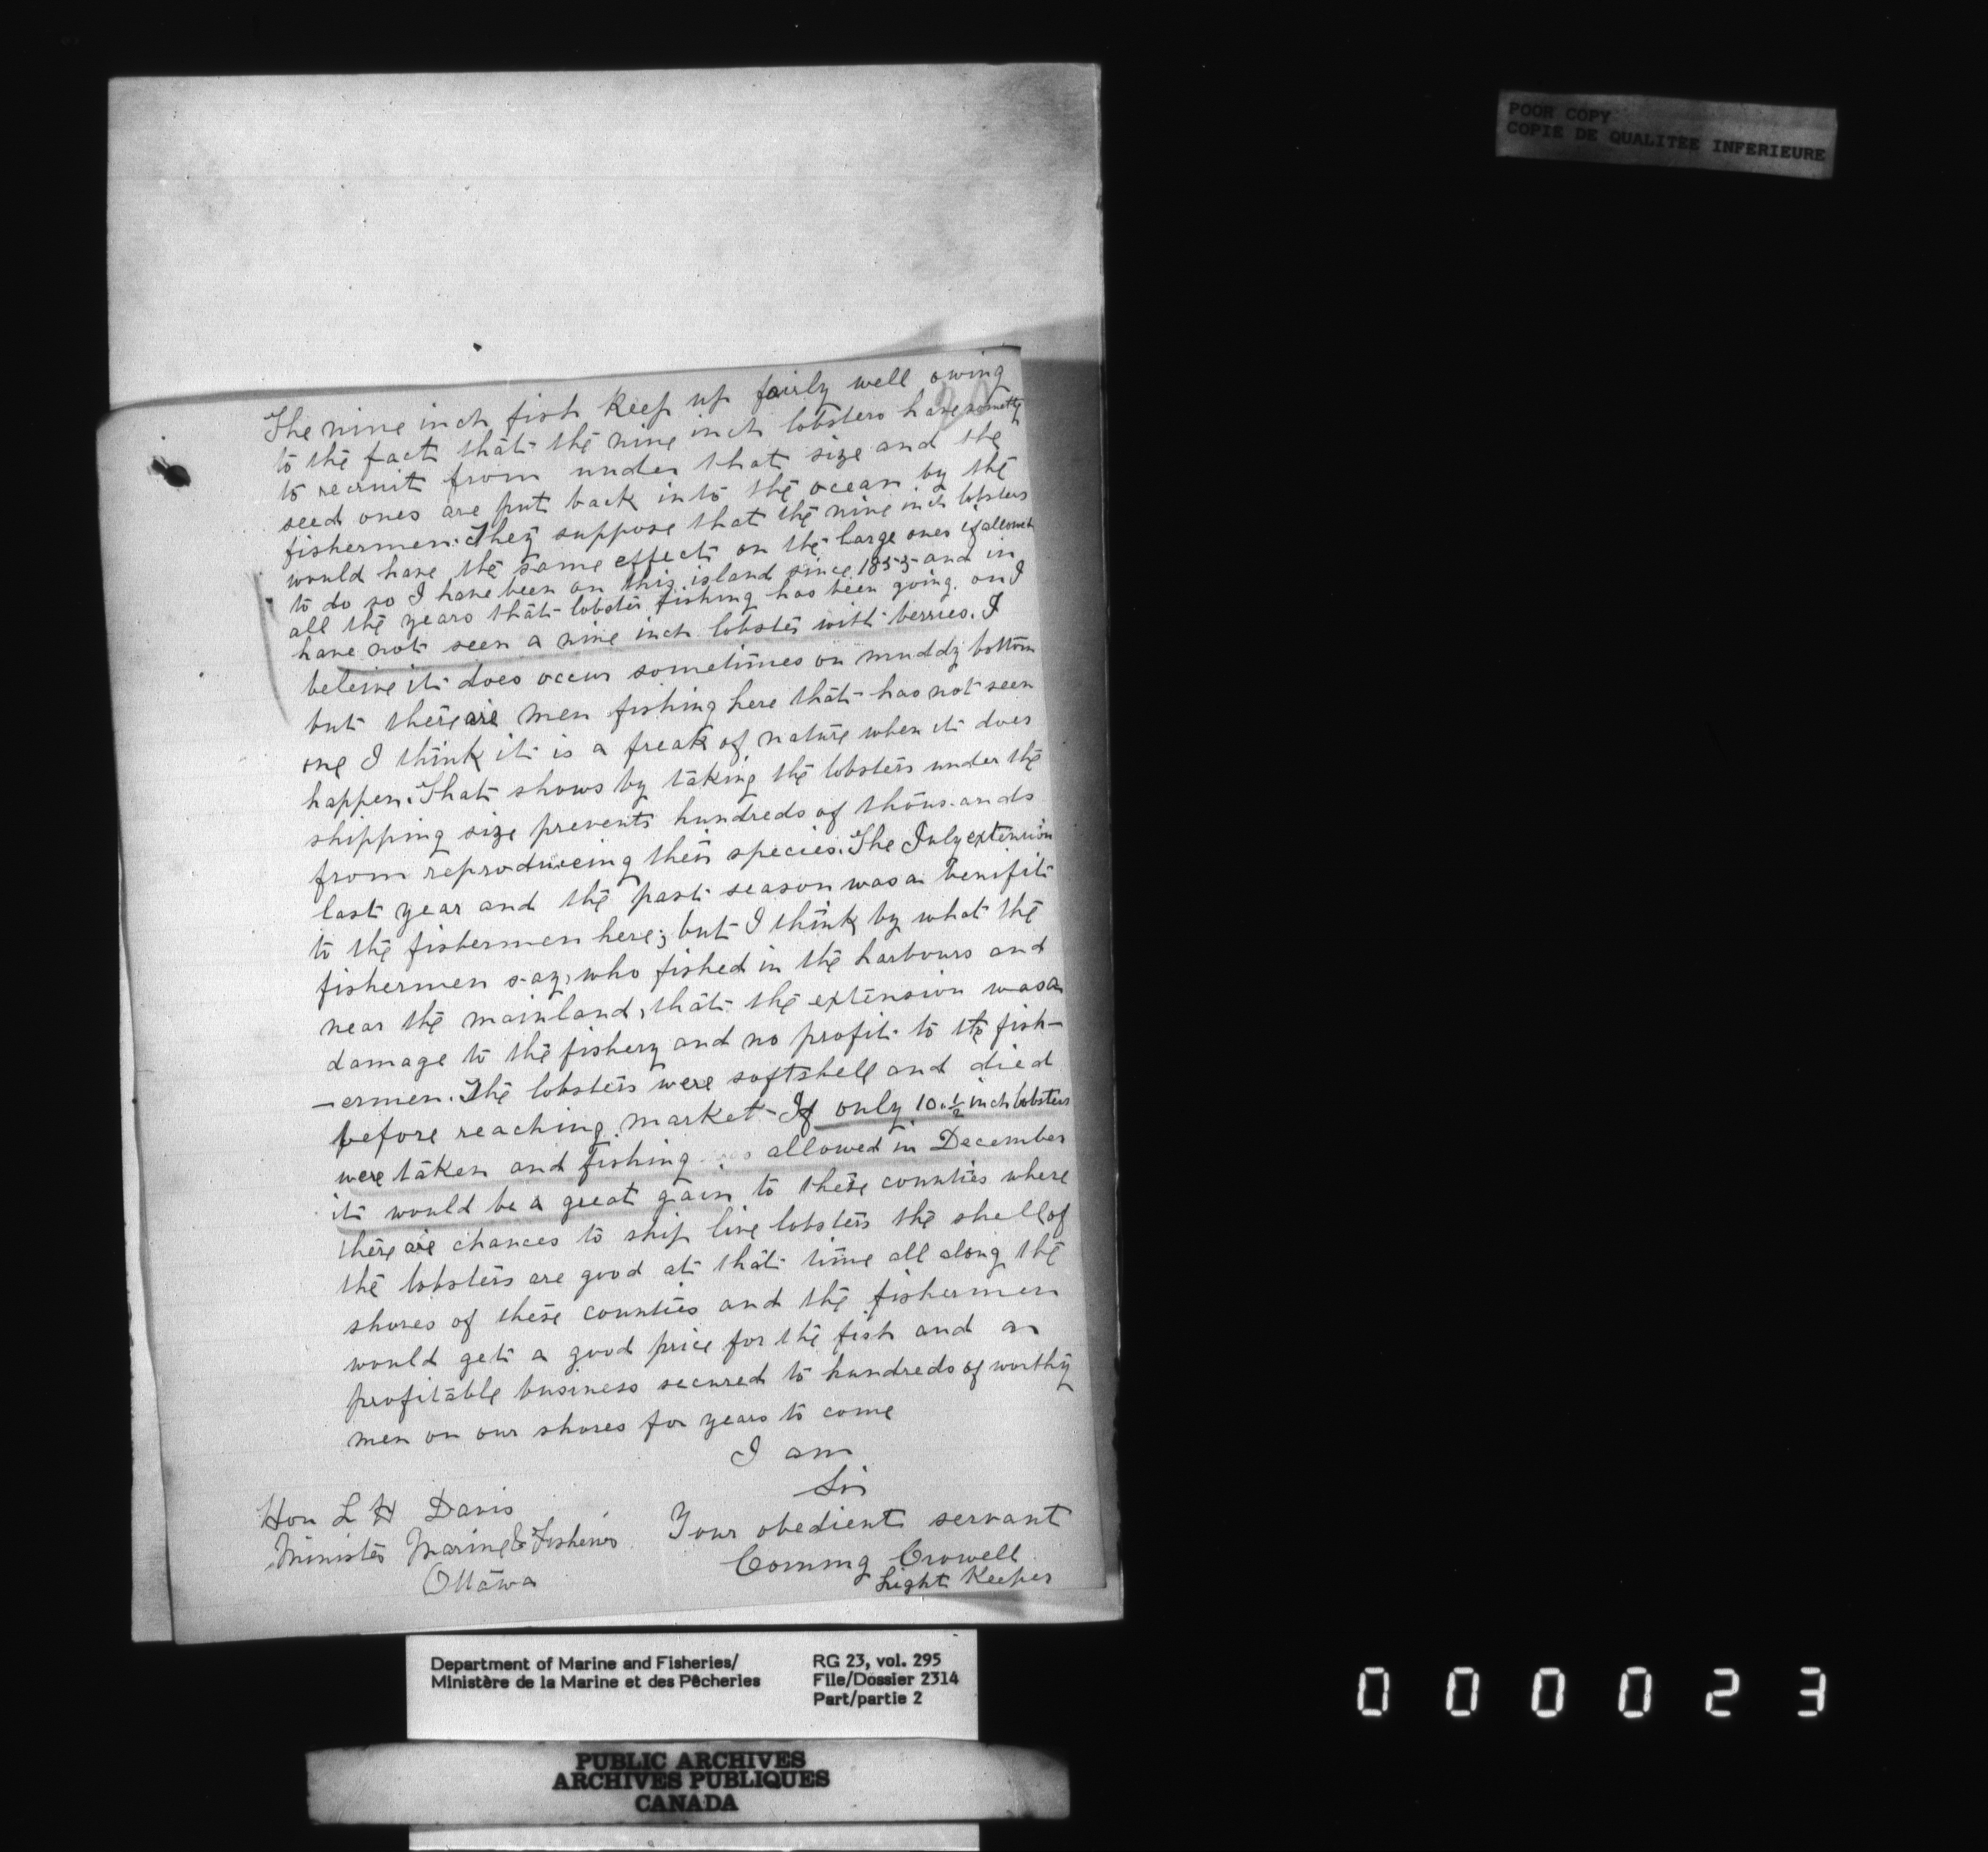 POOR COPY
COPIE DE QUALITEE INFERIEURE
20
The nine inch fish keep up fairly well owing
to the fact that the nine inch lobsters have
to recruit from under that size and the
seed ones are put back into the ocean by the
fishermen. They suppose that the nine inch lobsters
would have the same effect on the large ones if allowed
to do so I have been on this island since 1855 and in
all the years that lobster fishing has been going on I
have not seen a nine inch lobster with berries. I
beleive it does occur sometimes on muddy bottom
but there are men fishing here that has not seen
one I think it is a freak of nature when it does
happen. That shows by taking the lobsters under the
shipping size prevents hundreds of thousands
from reproducing their species. The July extension
last year and the past season was a benifit
to the fishermen here; but I think by what the
fishermen say, who fished in the harbours and
near the mainland, that the extension was a
damage to the fishery and no profit to the fish-
-ermen. The lobsters were softshell and died
before reaching market - If only 10.½ inch lobsters
were taken and fishing allowed in December
it would be a great gain to these counties where
there are chances to ship live lobsters the shell of
the lobsters are good at that time all along the
shores of these counties and the fishermen
would get a good price for the fish and a
profitable business secured to hundreds of worthy
men on our shores for years to come
I am
Sir
Your obedient servant
Corning Crowell
Light Keeper
Hon L H Davis
Minister Marine & Fisheries
Ottawa
Department of Marine and Fisheries/
Ministère de la Marine et des Pêcheries
RG 23, vol. 295
File/Dossier 2314
Part/partie 2
PUBLIC ARCHIVES
ARCHIVES PUBLIQUES
CANADA
000023